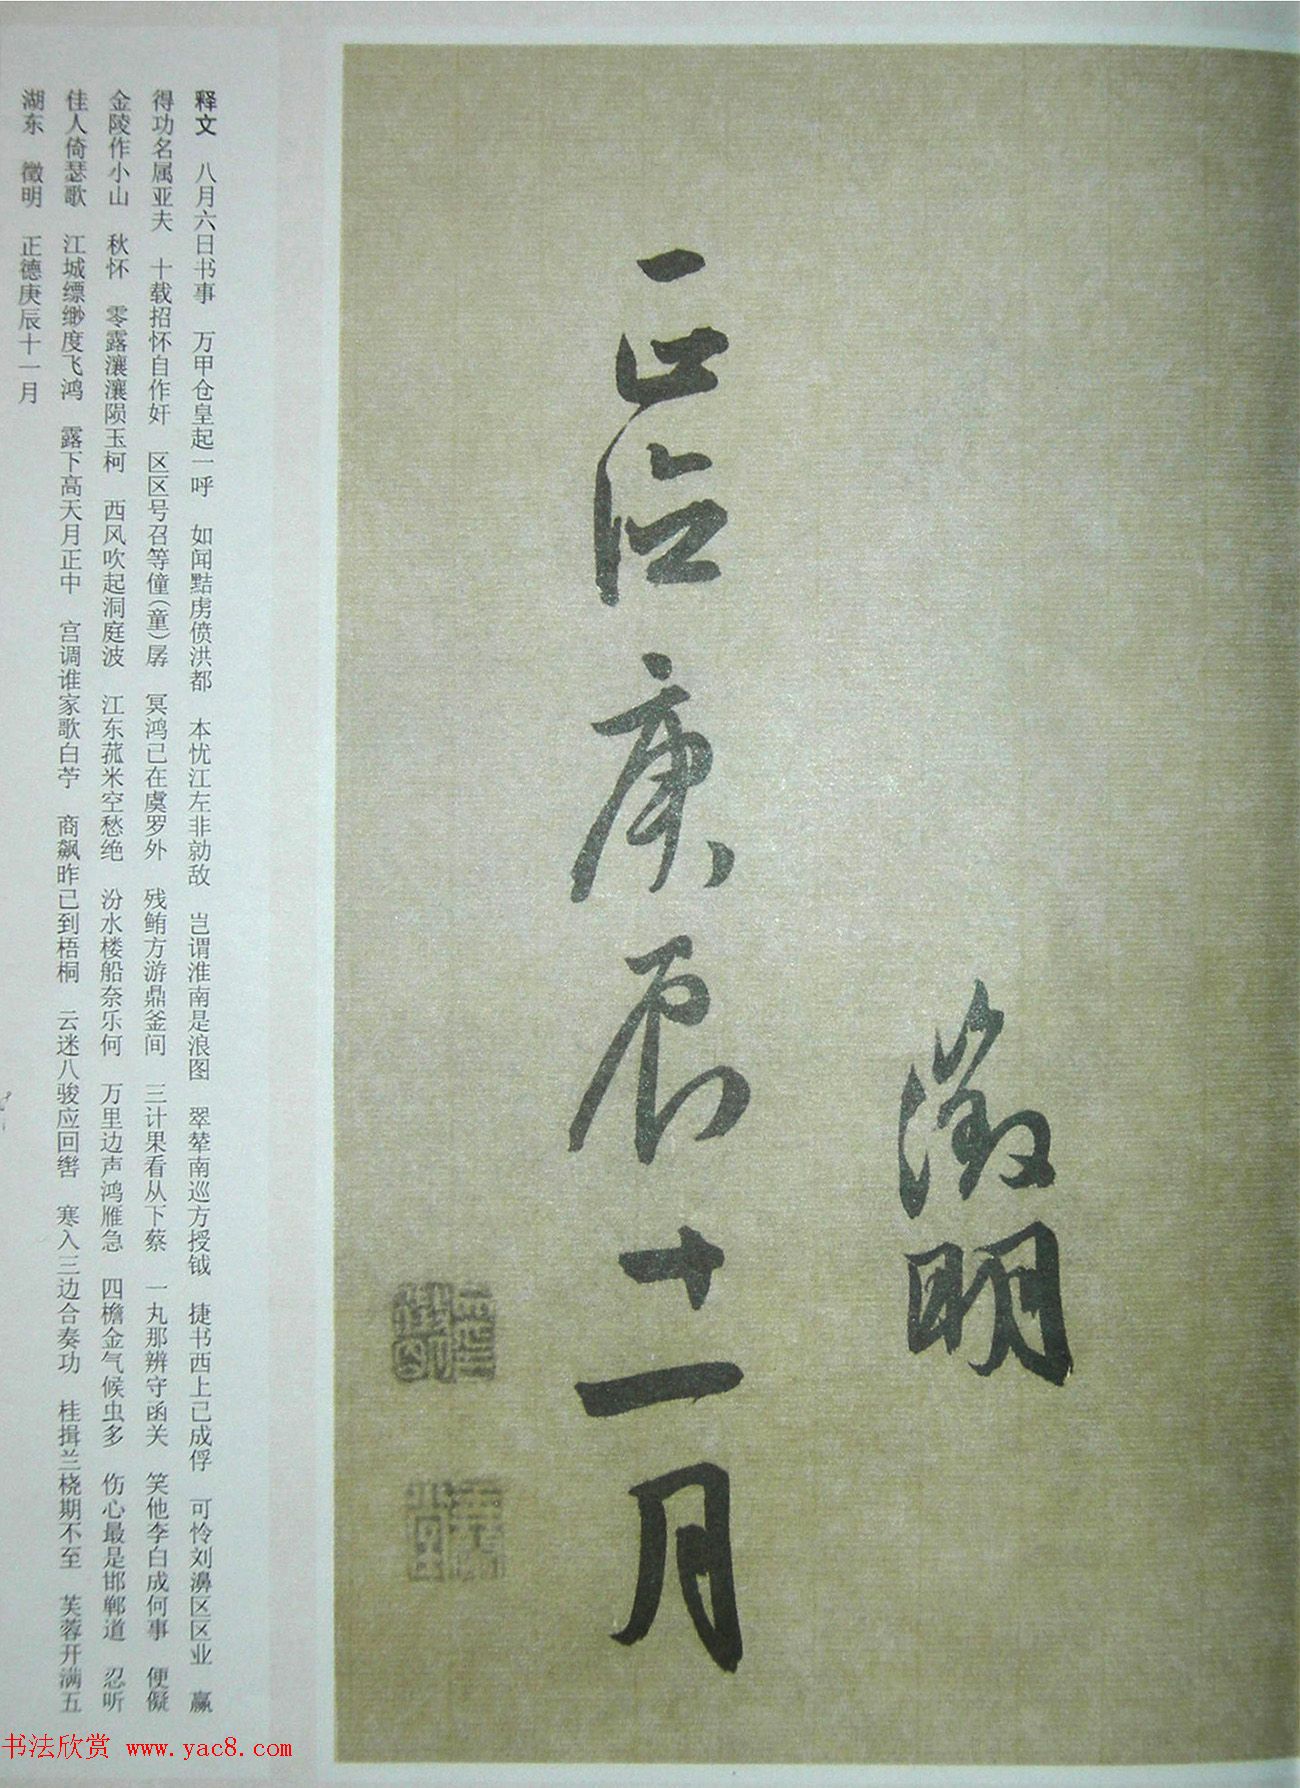 徵明
正德庚辰十一月
释文　八月六日书事　万甲仓皇起一呼　如闻黠虏偾洪都　本忧江左非勍敌　岂谓淮南是浪图　翠辇南巡方授钺　捷书西上已成俘　可怜刘濞区区业　赢
得功名属亚夫　十载招怀自作奸　区区号召等僮（童）孱　冥鸿已在虞罗外　残鲔方游鼎釜间　三计果看从下蔡　一丸那辨守函关　笑他李白成何事　便儗
金陵作小山　秋怀　零露瀼瀼陨玉柯　西风吹起洞庭波　江东菰米空愁绝　汾水楼船奈乐何　万里边声鸿雁急　四檐金气候虫多　伤心最是邯郸道　忍听
佳人倚瑟歌　江城缥缈度飞鸿　露下高天月正中　宫调谁家歌白苧　商飙昨已到梧桐　云迷八骏应回辔　寒入三边合奏功　桂揖兰桡期不至　芙蓉开满五
湖东　徵明　正德庚辰十一月
书法欣赏 www.yac8.com